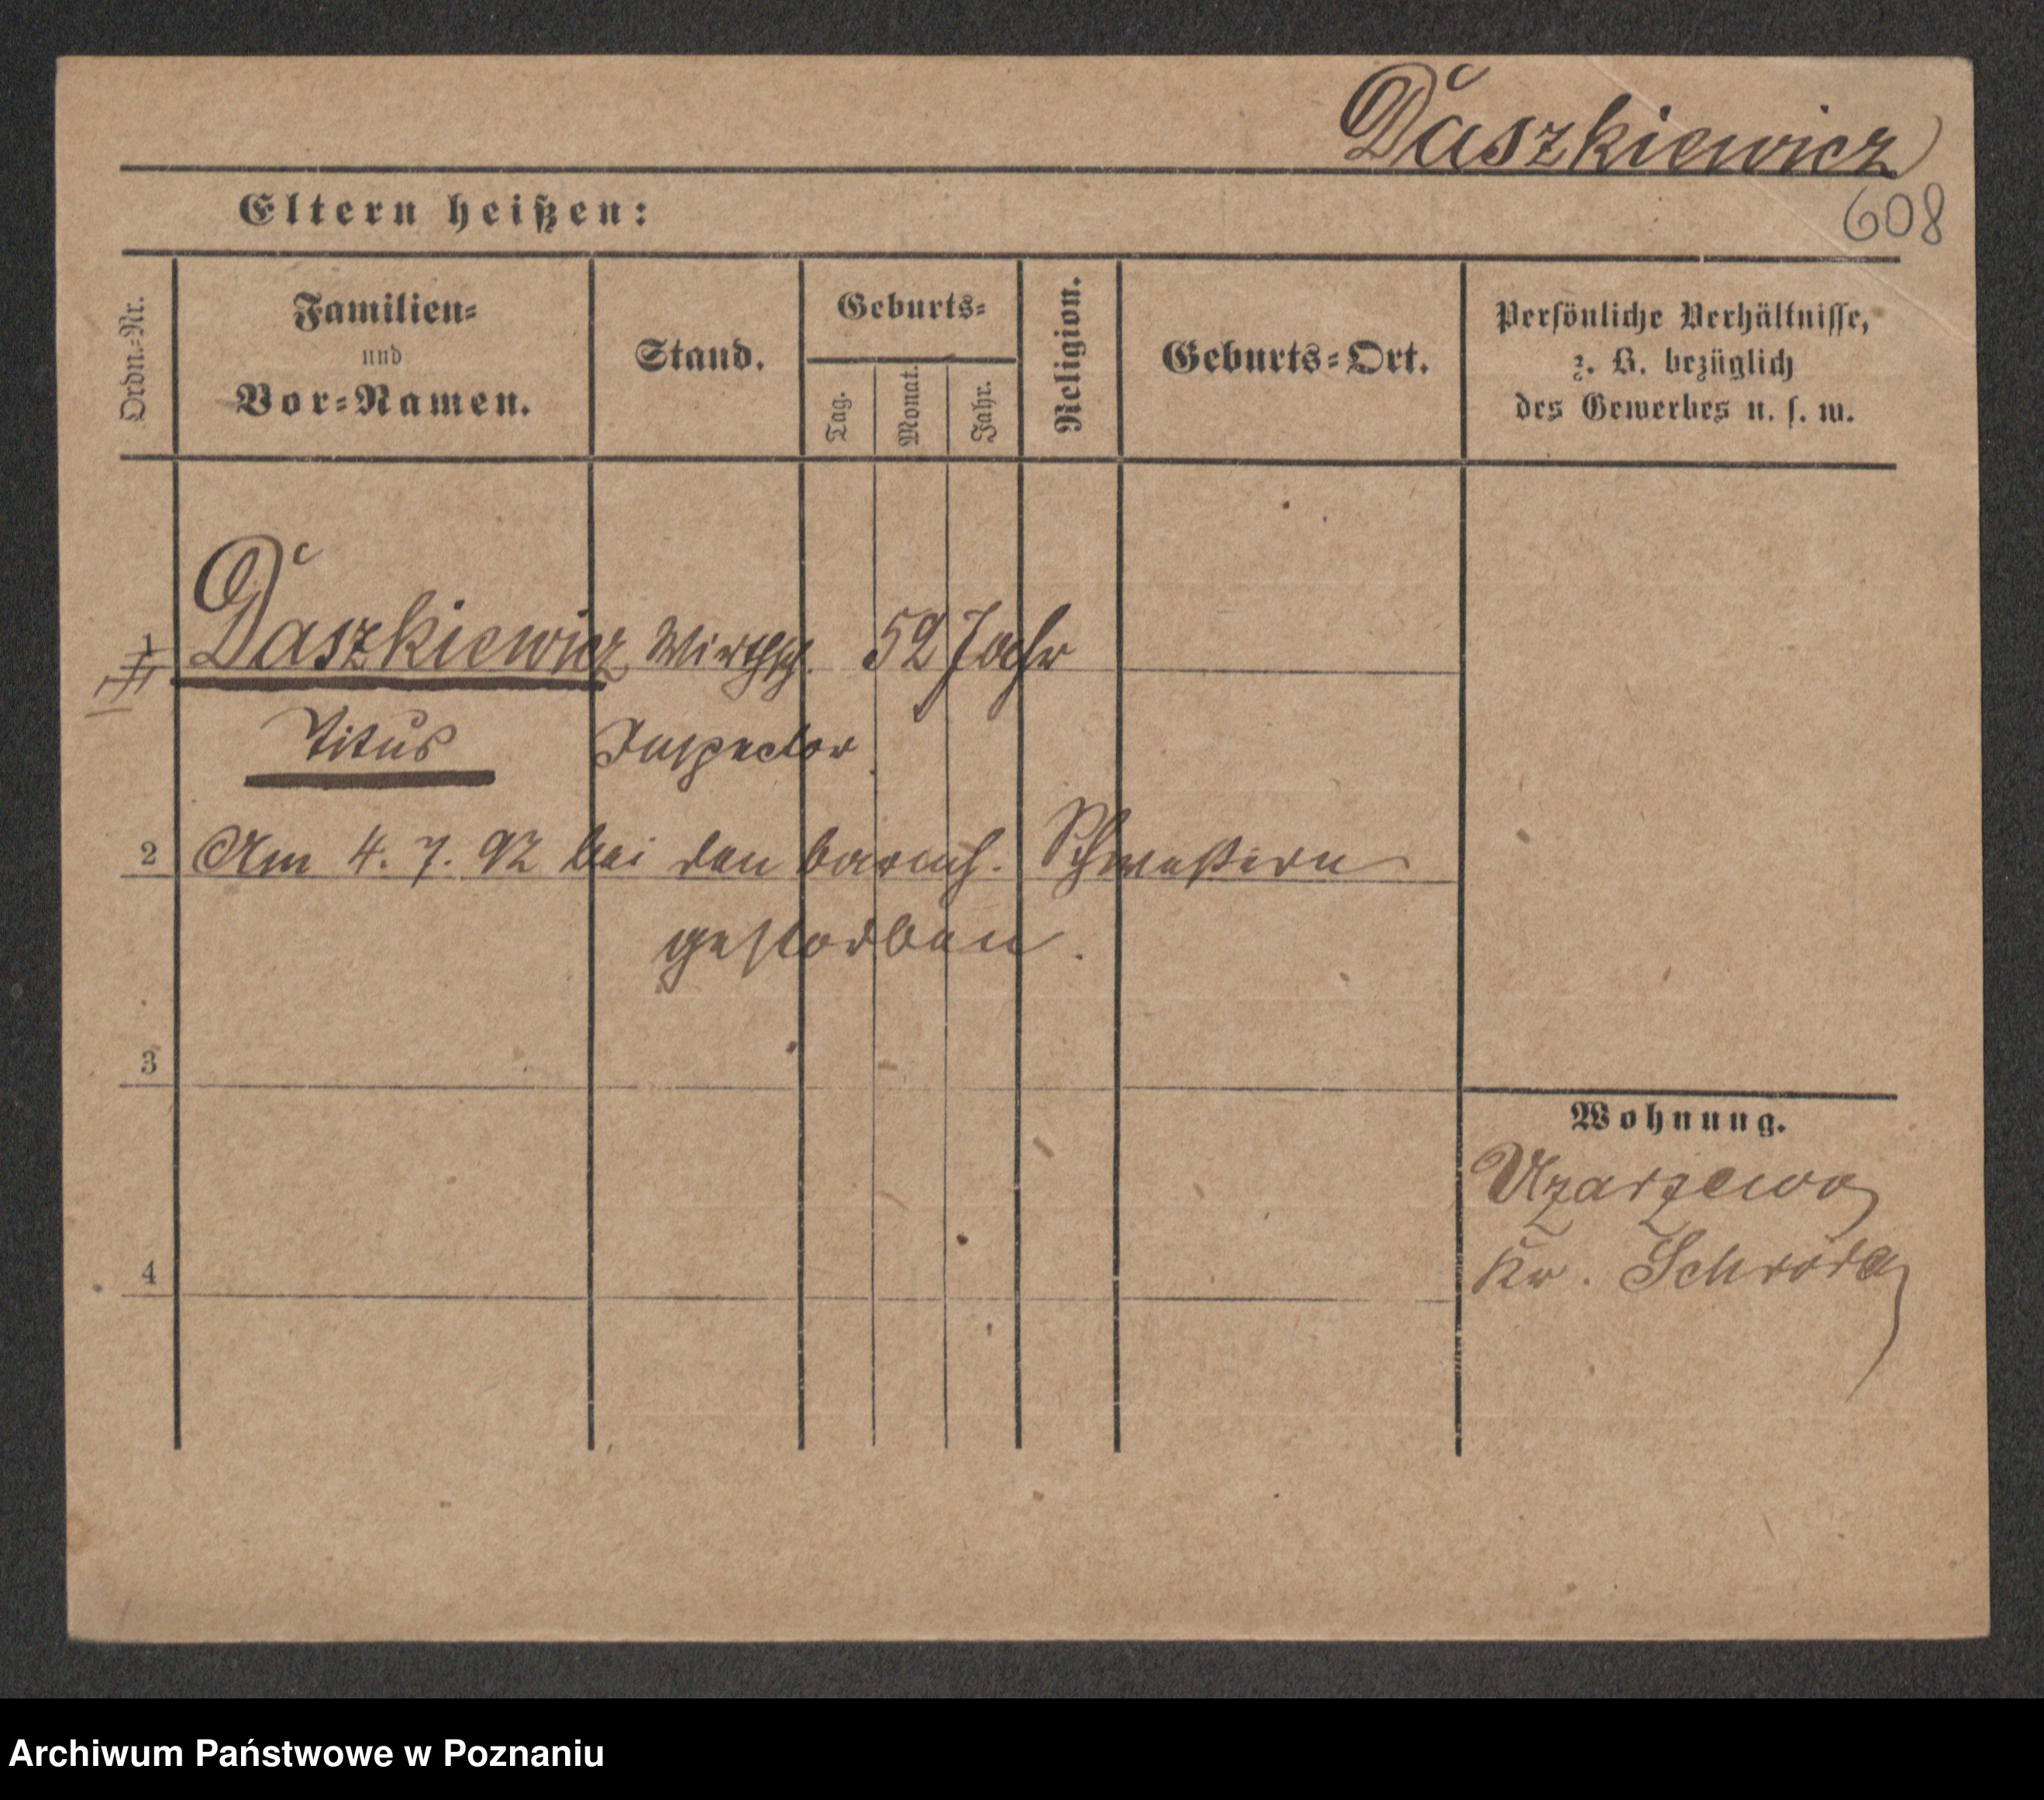 Daszkiewicz
608
Eltern heißen:
Ordn.-Nr.
Familien-
und
Vor-Namen.
Stand.
Geburts-
Tag.
Monat.
Jahr.
Religion.
Geburts-Ort.
Persönliche Verhältnisse,
z. B. bezüglich
des Gewerbes u. s. w.
1 Daszkiewicz Wirthsch. 52 Jahr
Titus Inspector
2 Am 4. 7. 92 bei den barmh. Schwestern
gestorben.
3
4
Wohnung.
Uzarzewo
Kr. Schroda
Archiwum Państwowe w Poznaniu